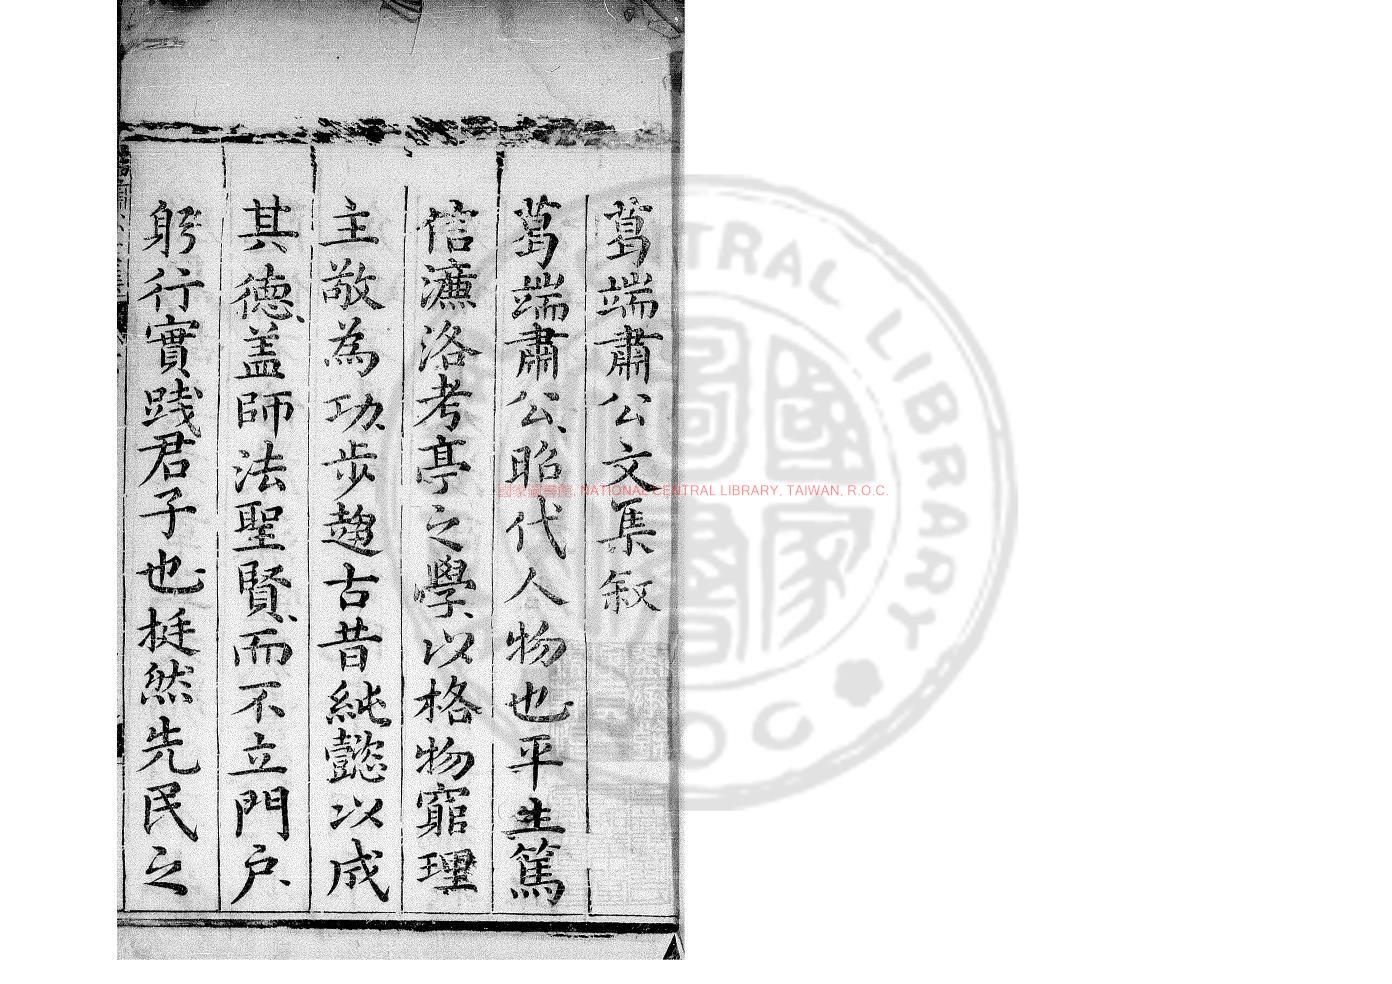 葛端肅公文集叙
葛端肅公昭代人物也平生篤
信濂洛考亭之學以格物窮理
主敬為功步趨古昔純懿以成
其德盖師法聖賢而不立門戶
躬行實踐君子也挺然先民之
國家圖書館, NATIONAL CENTRAL LIBRARY, TAIWAN, R.O.C.
CENTRAL LIBRARY
R O C